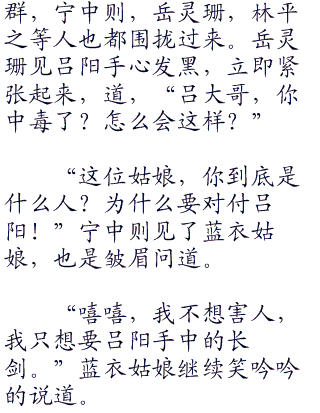 群，宁中则，岳灵珊，林平
之等人也都围拢过来。岳灵
珊见吕阳手心发黑，立即紧
张起来，道，“吕大哥，你
中毒了？怎么会这样？”
“这位姑娘，你到底是
什么人？为什么要对付吕
阳！”宁中则见了蓝衣姑
娘，也是皱眉问道。
“嘻嘻，我不想害人，
我只想要吕阳手中的长
剑。”蓝衣姑娘继续笑吟吟
的说道。